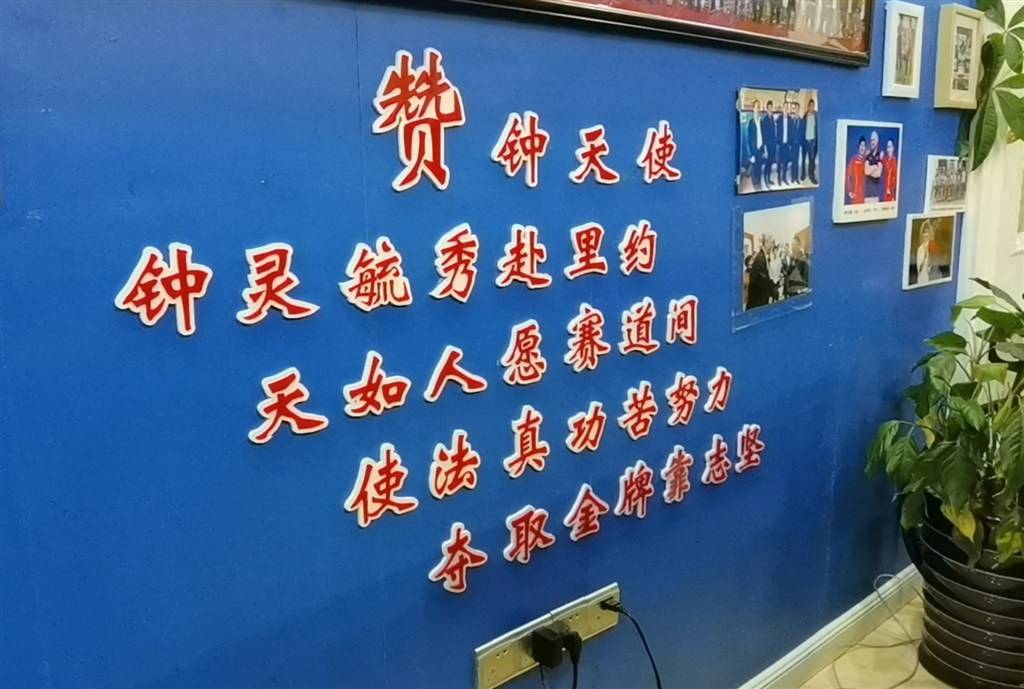 赞钟天使
钟灵毓秀赴里约
天如人愿赛道间
使法真功苦努力
夺取金牌靠志坚